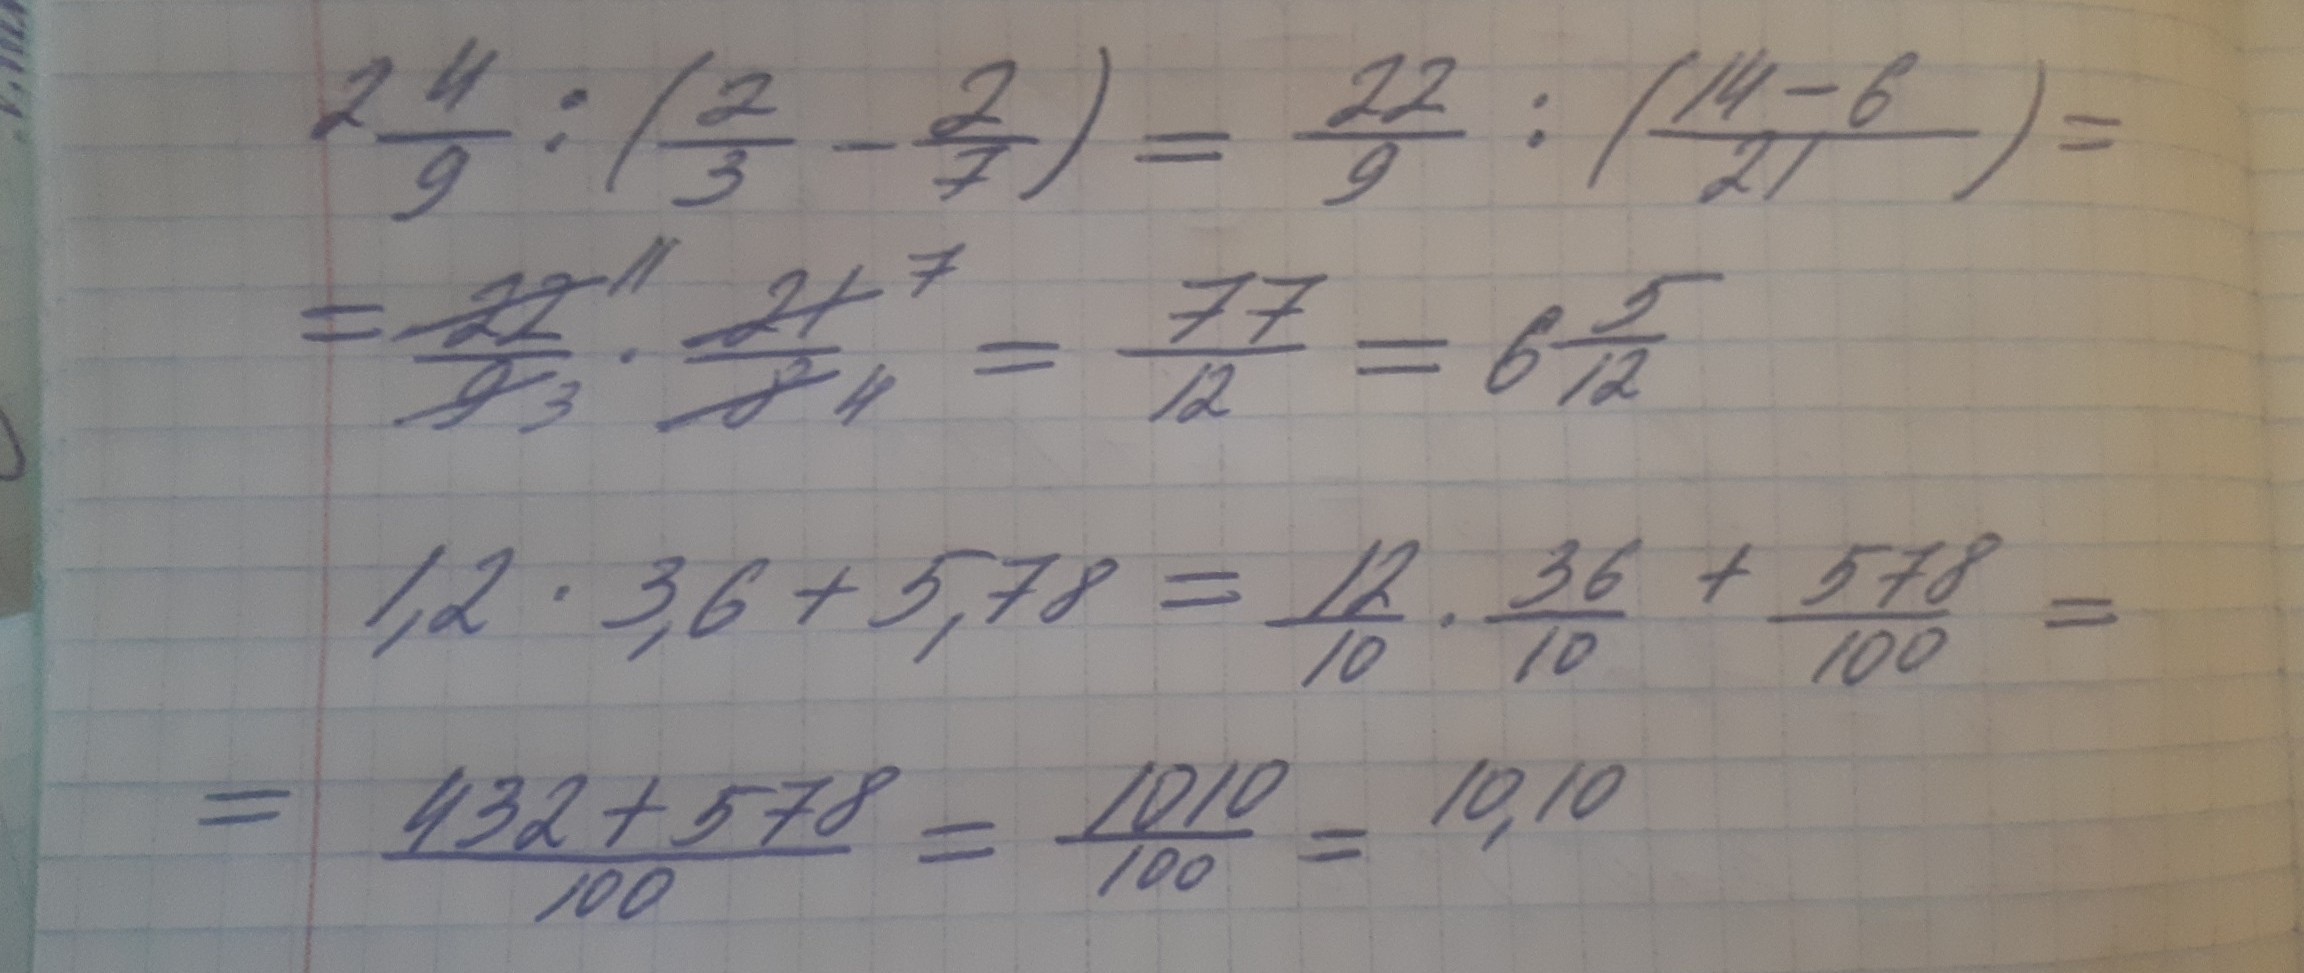 2 4/9 : (2/3 - 2/7) = 22/9 : (14-6/21) =
= 22/9 11 3 · 21/8 7 4 = 77/12 = 6 5/12
1,2 · 3,6 + 5,78 = 12/10 · 36/10 + 578/100 =
= 432+578/100 = 1010/100 = 10,10